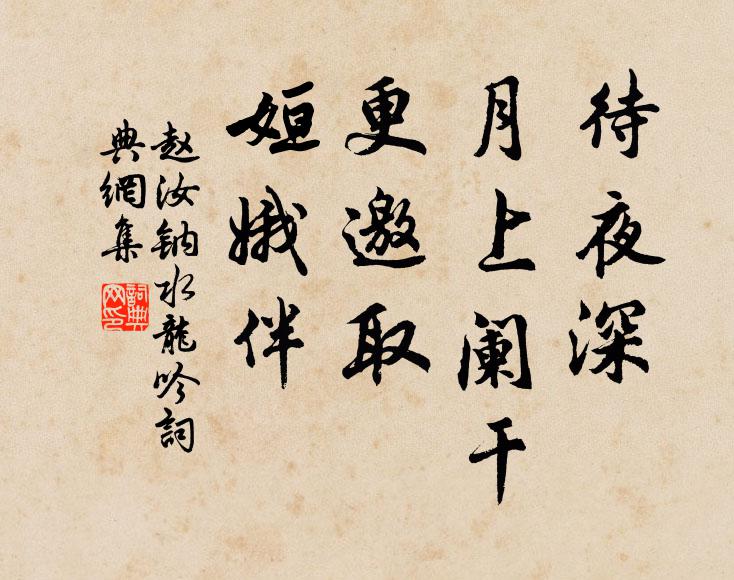 待夜深
月上阑干
更邀取
姮娥伴
赵汝钠水龍吟詞
典網集
詞典
网印